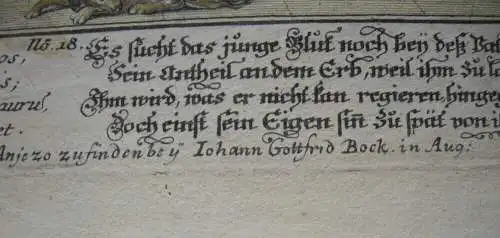 os, N5. 18. Es sucht das junge Blut noch bey deß Va
is; Sein Antheil an dem Erb, weil ihm Zu
aurus, Ihm wird, was er nicht kan regieren, hinge
et. Doch einst sein Eigen sin Zu spät von i
Anjezo zufinden beÿ Iohann Gottfrid Bock. in Aug: